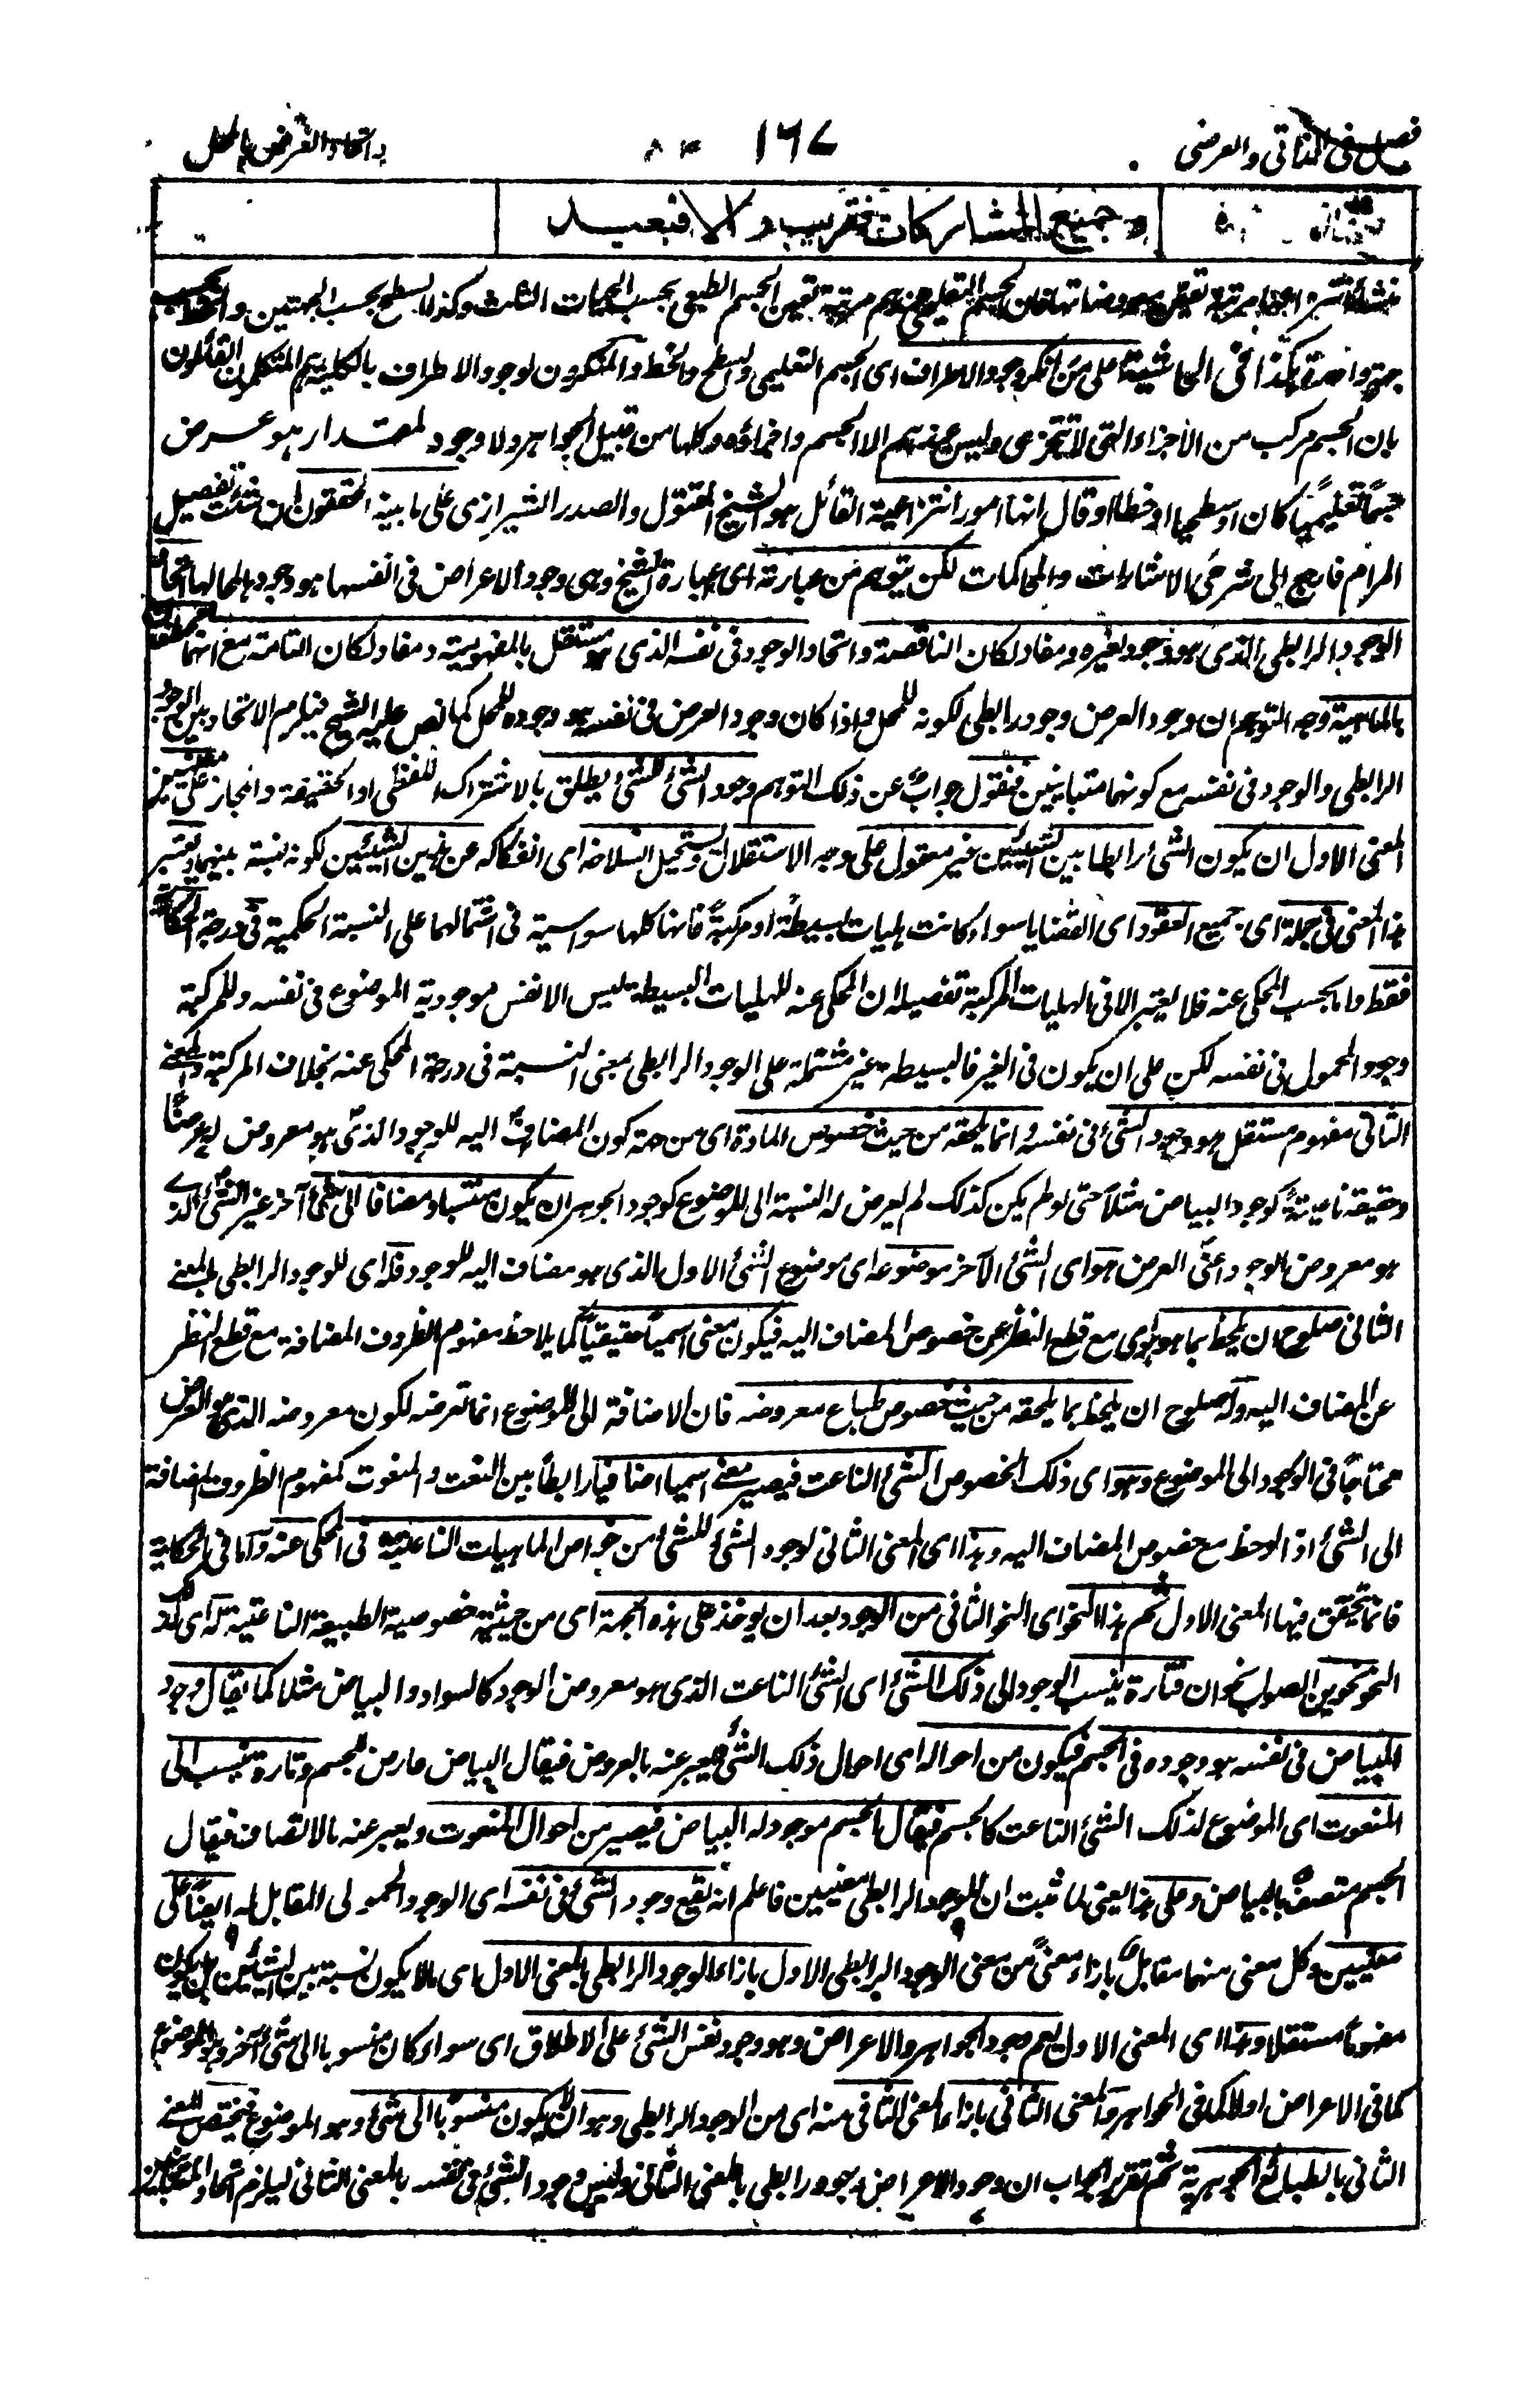 فصل فى الذاتى والعرضى
١٦٧
اتحاد العرض بالمحل
وجميع المشاركات فقريب والا فبعيد
مرتبة تعين الجسم الطبيعى بحسب الجهات الثلث وكذا السطح بحسب الجهتين والخط بحسب
جهة واحدة هكذا فى الحاشية على من انكر وجود الاطراف اى الجسم التعليمى والسطح والخط والمنكرون لوجود الاطراف بالكلية هم المتكلمون القائلون
بان الجسم مركب من الأجزاء التى لا تتجزى وليس عندهم الا الجسم واجزاؤه وكلها من قبيل الجواهر ولا وجود لمقدار هو عرض
جسمًا تعليميًا كان او سطحيا او خطا او قال انها امور انتزاعية القائل هو الشيخ المقتول والصدر الشيرازى على ما بينه المحققون ان شئت تفصيل
المرام فارجع الى شرحى الاشارات والمحاكمات لكن يتوهم من عبارته اى عبارة الشيخ وهى وجود الاعراض فى انفسها هو وجودها لمحالها اتحاد
الوجود الرابطى الذى هو وجود لغيره ومفاد لكان الناقصة واتحاد الوجود فى نفسه الذى هو مستقل بالمفهومية ومفاد لكان التامة مع انهما مختلفان
بالماهية وجه التوهم ان وجود العرض وجود رابطى لكونه للمحل فاذا كان وجود العرض فى نفسه هو وجوده للمحل كما نص عليه الشيخ فيلزم الاتحاد بين الوجود
الرابطى والوجود فى نفسه مع كونهما متباينين فنقول جواب عن ذلك التوهم وجود الشئ للشئ يطلق بالاشتراك اللفظى او الحقيقة والمجاز على معنيين
المعنى الاول ان يكون الشئ رابطا بين الشيئين غير معقول على وجه الاستقلال ويستحيل انسلاخه اى انفكاكه عن هذين الشيئين لكونه نسبة بينهما ويعتبر
هذا المعنى فى جملة اى جميع العقود اى القضايا سواء كانت هليات بسيطة او مركبة فانها كلها سواسية فى اشتمالها على النسبة الحكمية فى درجة الحكاية
فقط واما بحسب المحكى عنه فلا يعتبر الا فى الهليات المركبة تفصيله ان المحكى عنه للهليات البسيطة ليس الا نفس موجودية الموضوع فى نفسه وللمركبة
وجود المحمول فى نفسه لكن على ان يكون فى الغير فالبسيطة غير مشتملة على الوجود الرابطى بمعنى النسبة فى درجة المحكى عنه بخلاف المركبة والمعنى
الثانى مفهوم مستقل هو وجود الشئ فى نفسه وانما يلحقه من حيث خصوص المادة اى من جهة كون المضاف اليه للوجود الذى هو معروض له عرضًا
وحقيقة ناعتيةً كوجود البياض مثلاً حتى لو لم يكن كذلك لم يعرض له النسبة الى الموضوع كوجود الجوهر ان يكون منتسبا ومضافا الى شئ آخر غير الشئ الذى
هو معروض الوجود اعنى العرض هو اى الشئ الآخر موضوعه اى موضوع الشئ الاول الذى هو مضاف اليه للوجود فله اى للوجود الرابطى بالمعنى
الثانى صلوح ان يلحظ بما هو هو اى مع قطع النظر عن خصوص المضاف اليه فيكون معنى اسميًا حقيقيًا كما يلاحظ مفهوم الظروف المضافة مع قطع النظر
عن المضاف اليه وله صلوح ان يلحظ بما يلحقه من حيث خصوص طباع معروضه فان الاضافة الى الموضوع انما تعرضه لكون معروضه الذى هو العرض
محتاجًا فى الوجود الى الموضوع وهو اى ذلك الخصوص الشئ الناعت فيصير معنى اسميا اضافيا رابطاً بين النعت والمنعوت كمفهوم الظروف المضافة
الى الشئ اذا لوحظ مع خصوص المضاف اليه وهذا اى المعنى الثانى لوجود الشئ للشئ من خواص الماهيات الناعتية فى المحكى عنه واما فى الحكاية
فانما يتحقق فيها المعنى الاول ثم هذا النحو اى النحو الثانى من الوجود بعد ان يوخذ على هذه الجهة اى من حيثية خصوصية الطبيعة الناعتية له اى لذلك
النحو نحوين الصواب نحوان فتارة ينسب الوجود الى ذلك الشئ اى الشئ الناعت الذى هو معروض الوجود كالسواد والبياض مثلا كما يقال وجود
البياض فى نفسه هو وجوده فى الجسم فيكون من احواله اى احوال ذلك الشئ فيعبر عنه بالعروض فيقال البياض عارض للجسم وتارة ينسب الى
المنعوت اى الموضوع لذلك الشئ الناعت كالجسم فيقال الجسم موجود له البياض فيصير من احوال المنعوت ويعبر عنه بالاتصاف فيقال
الجسم متصف بالبياض وعلى هذا يعنى لما ثبت ان للوجود الرابطى معنيين فاعلم انه يقع وجود الشئ فى نفسه اى الوجود المحمولى المقابل له ايضًا على
معنيين وكل معنى منهما مقابل بازاء معنىً من معنى الوجود الرابطى الاول بازاء الوجود الرابطى بالمعنى الاول اى ما لا يكون نسبة بين الشيئين بل يكون
مفهومًا مستقلا وهذا اى المعنى الاول يعم وجود الجواهر والاعراض وهو وجود نفس الشئ على الاطلاق اى سواء كان منسوبا الى شئ آخر وهو الموضوع
كما فى الاعراض اولا كما فى الجواهر والمعنى الثانى بازاء المعنى الثانى منه اى من الوجود الرابطى وهو ان لا يكون منسوبًا الى شئ وهو الموضوع فيختص المعنى
الثانى بالطبائع الجوهرية ثم تقرير الجواب ان وجود الاعراض وجود رابطى بالمعنى الثانى وليس وجود الشئ فى نفسه بالمعنى الثانى ليلزم اتحاد المتقابلين